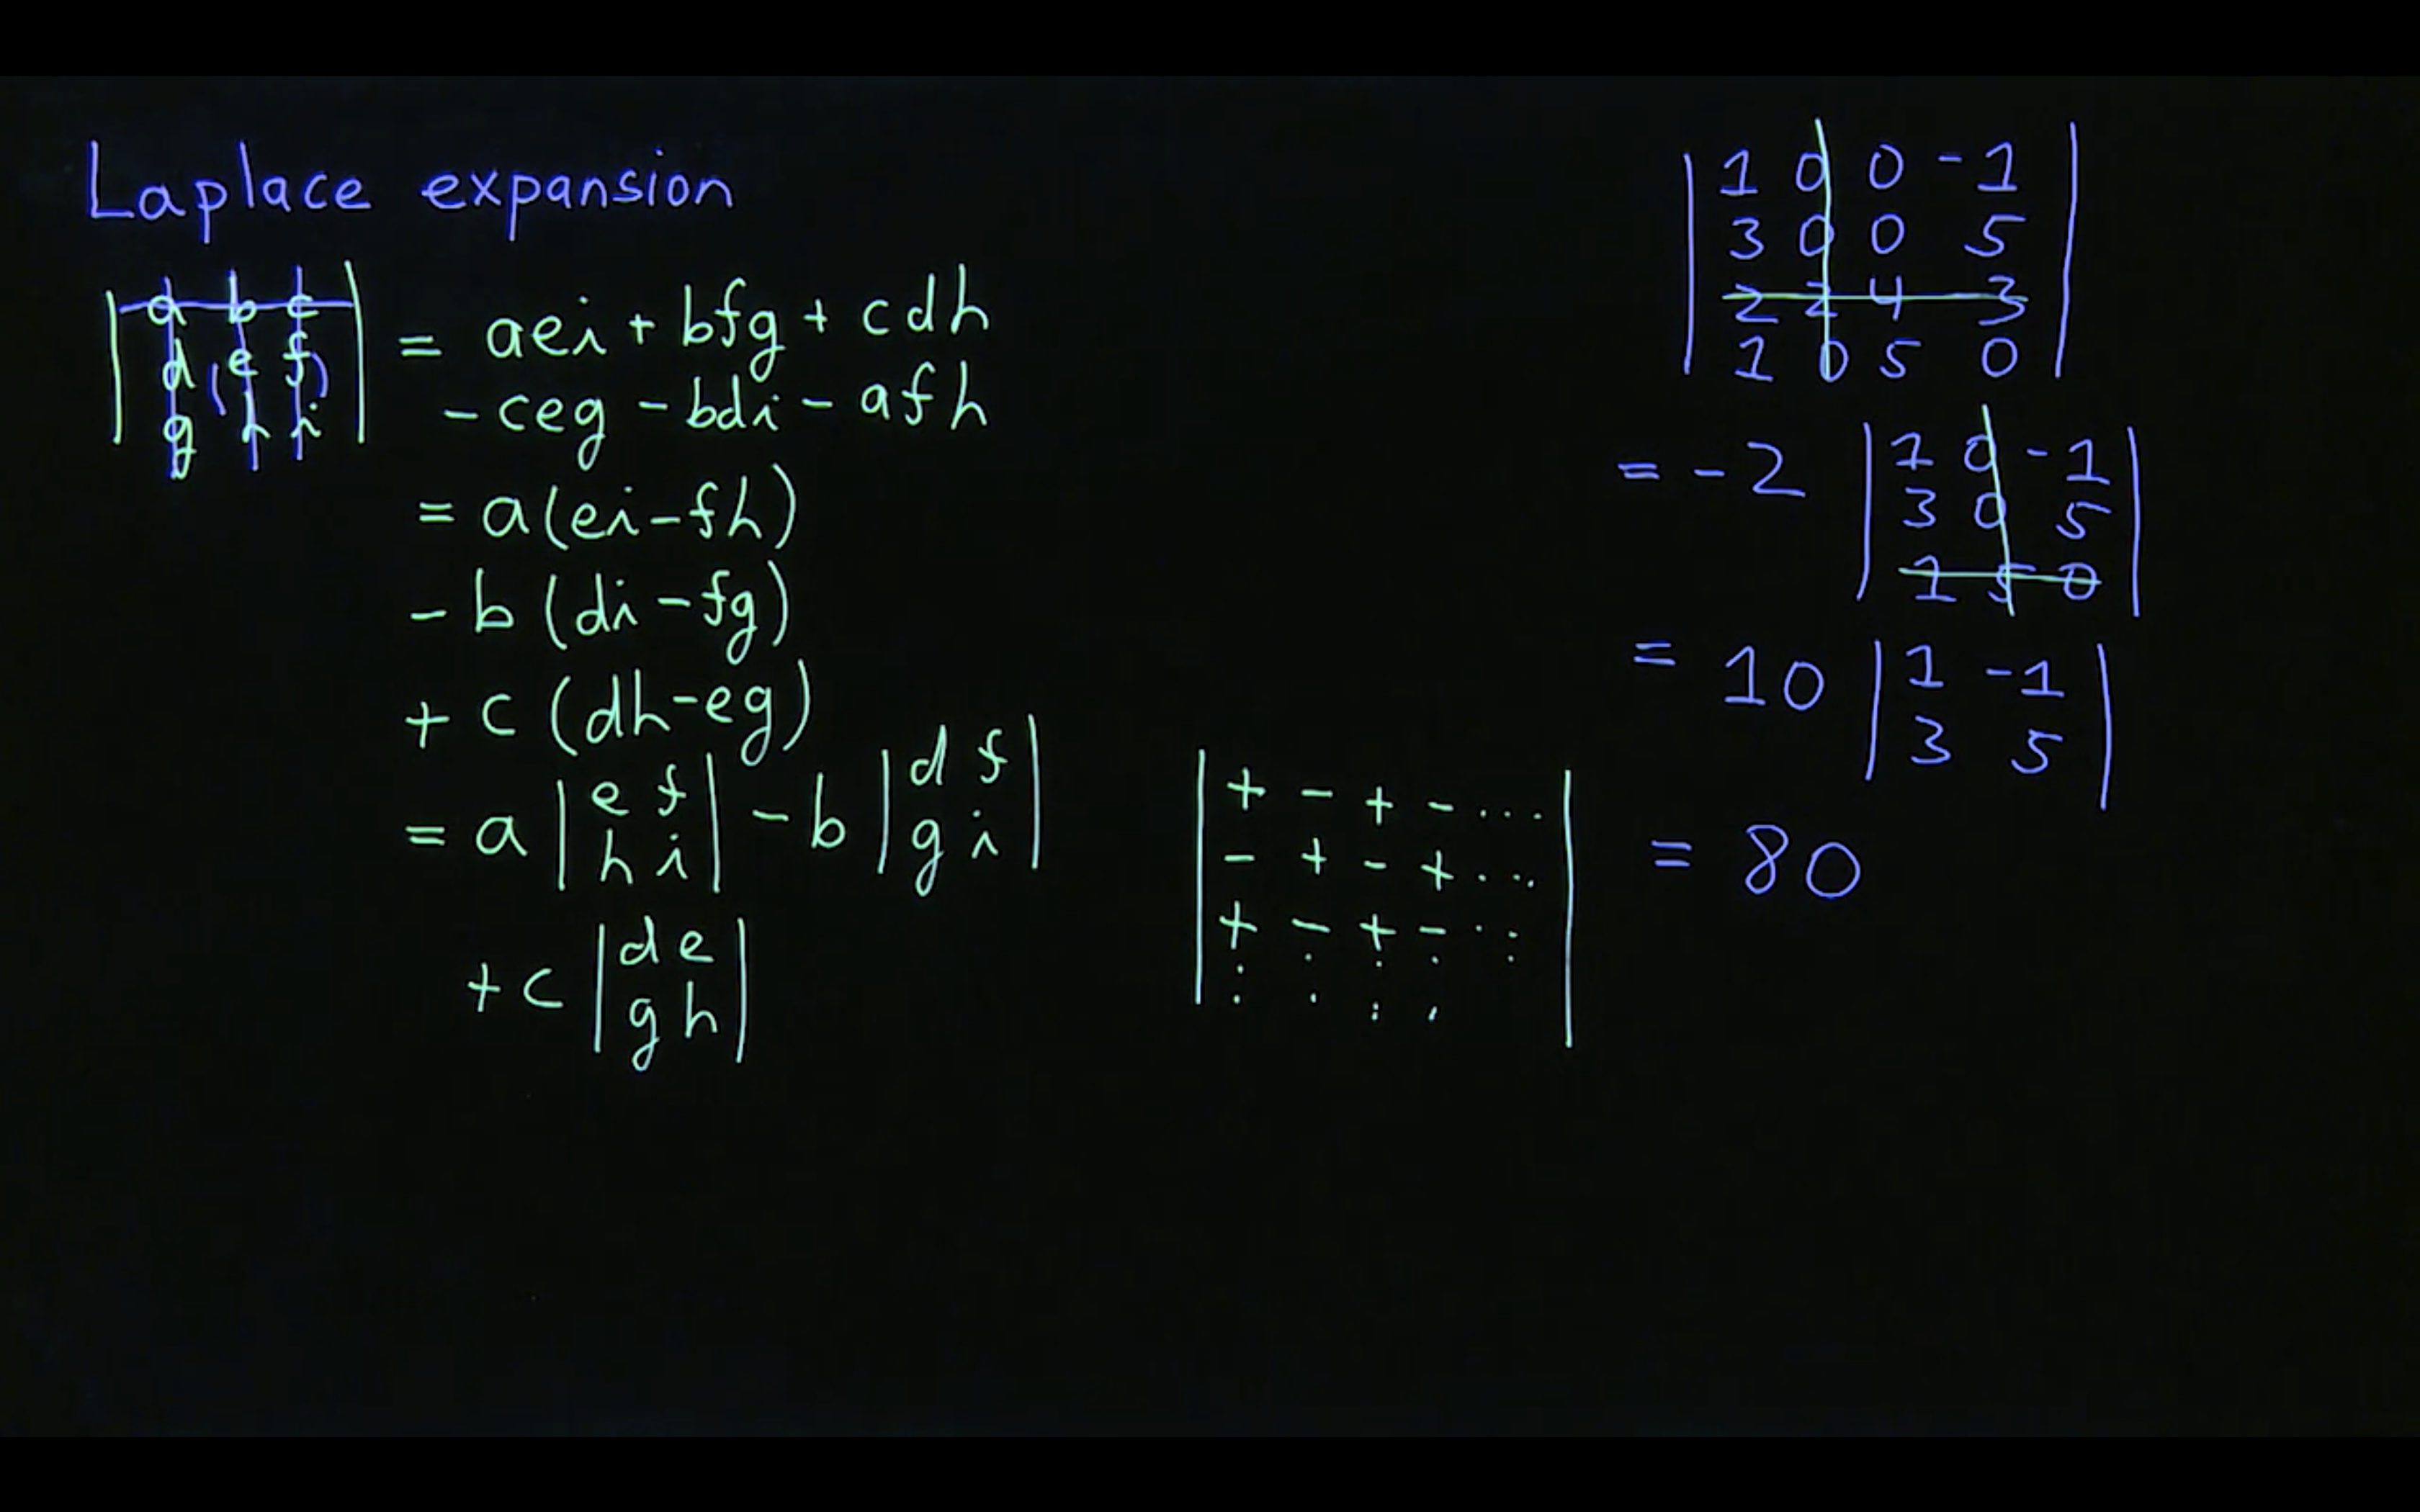 Laplace expansion
|a b c|
|d (e f)|
|g h i|
= aei + bfg + cdh
- ceg - bdi - afh
= a(ei-fh)
- b(di-fg)
+ c(dh-eg)
= a |e f| - b |d f|
|h i| |g i|
+ c |d e|
|g h|
|+ - + - ...|
|- + - + ...|
|+ - + - ...|
|1 0 0 -1|
|3 0 0 5|
|2 2 4 3|
|1 0 5 0|
= -2 |1 0 -1|
|3 0 5|
|1 5 0|
= 10 |1 -1|
|3 5|
= 80